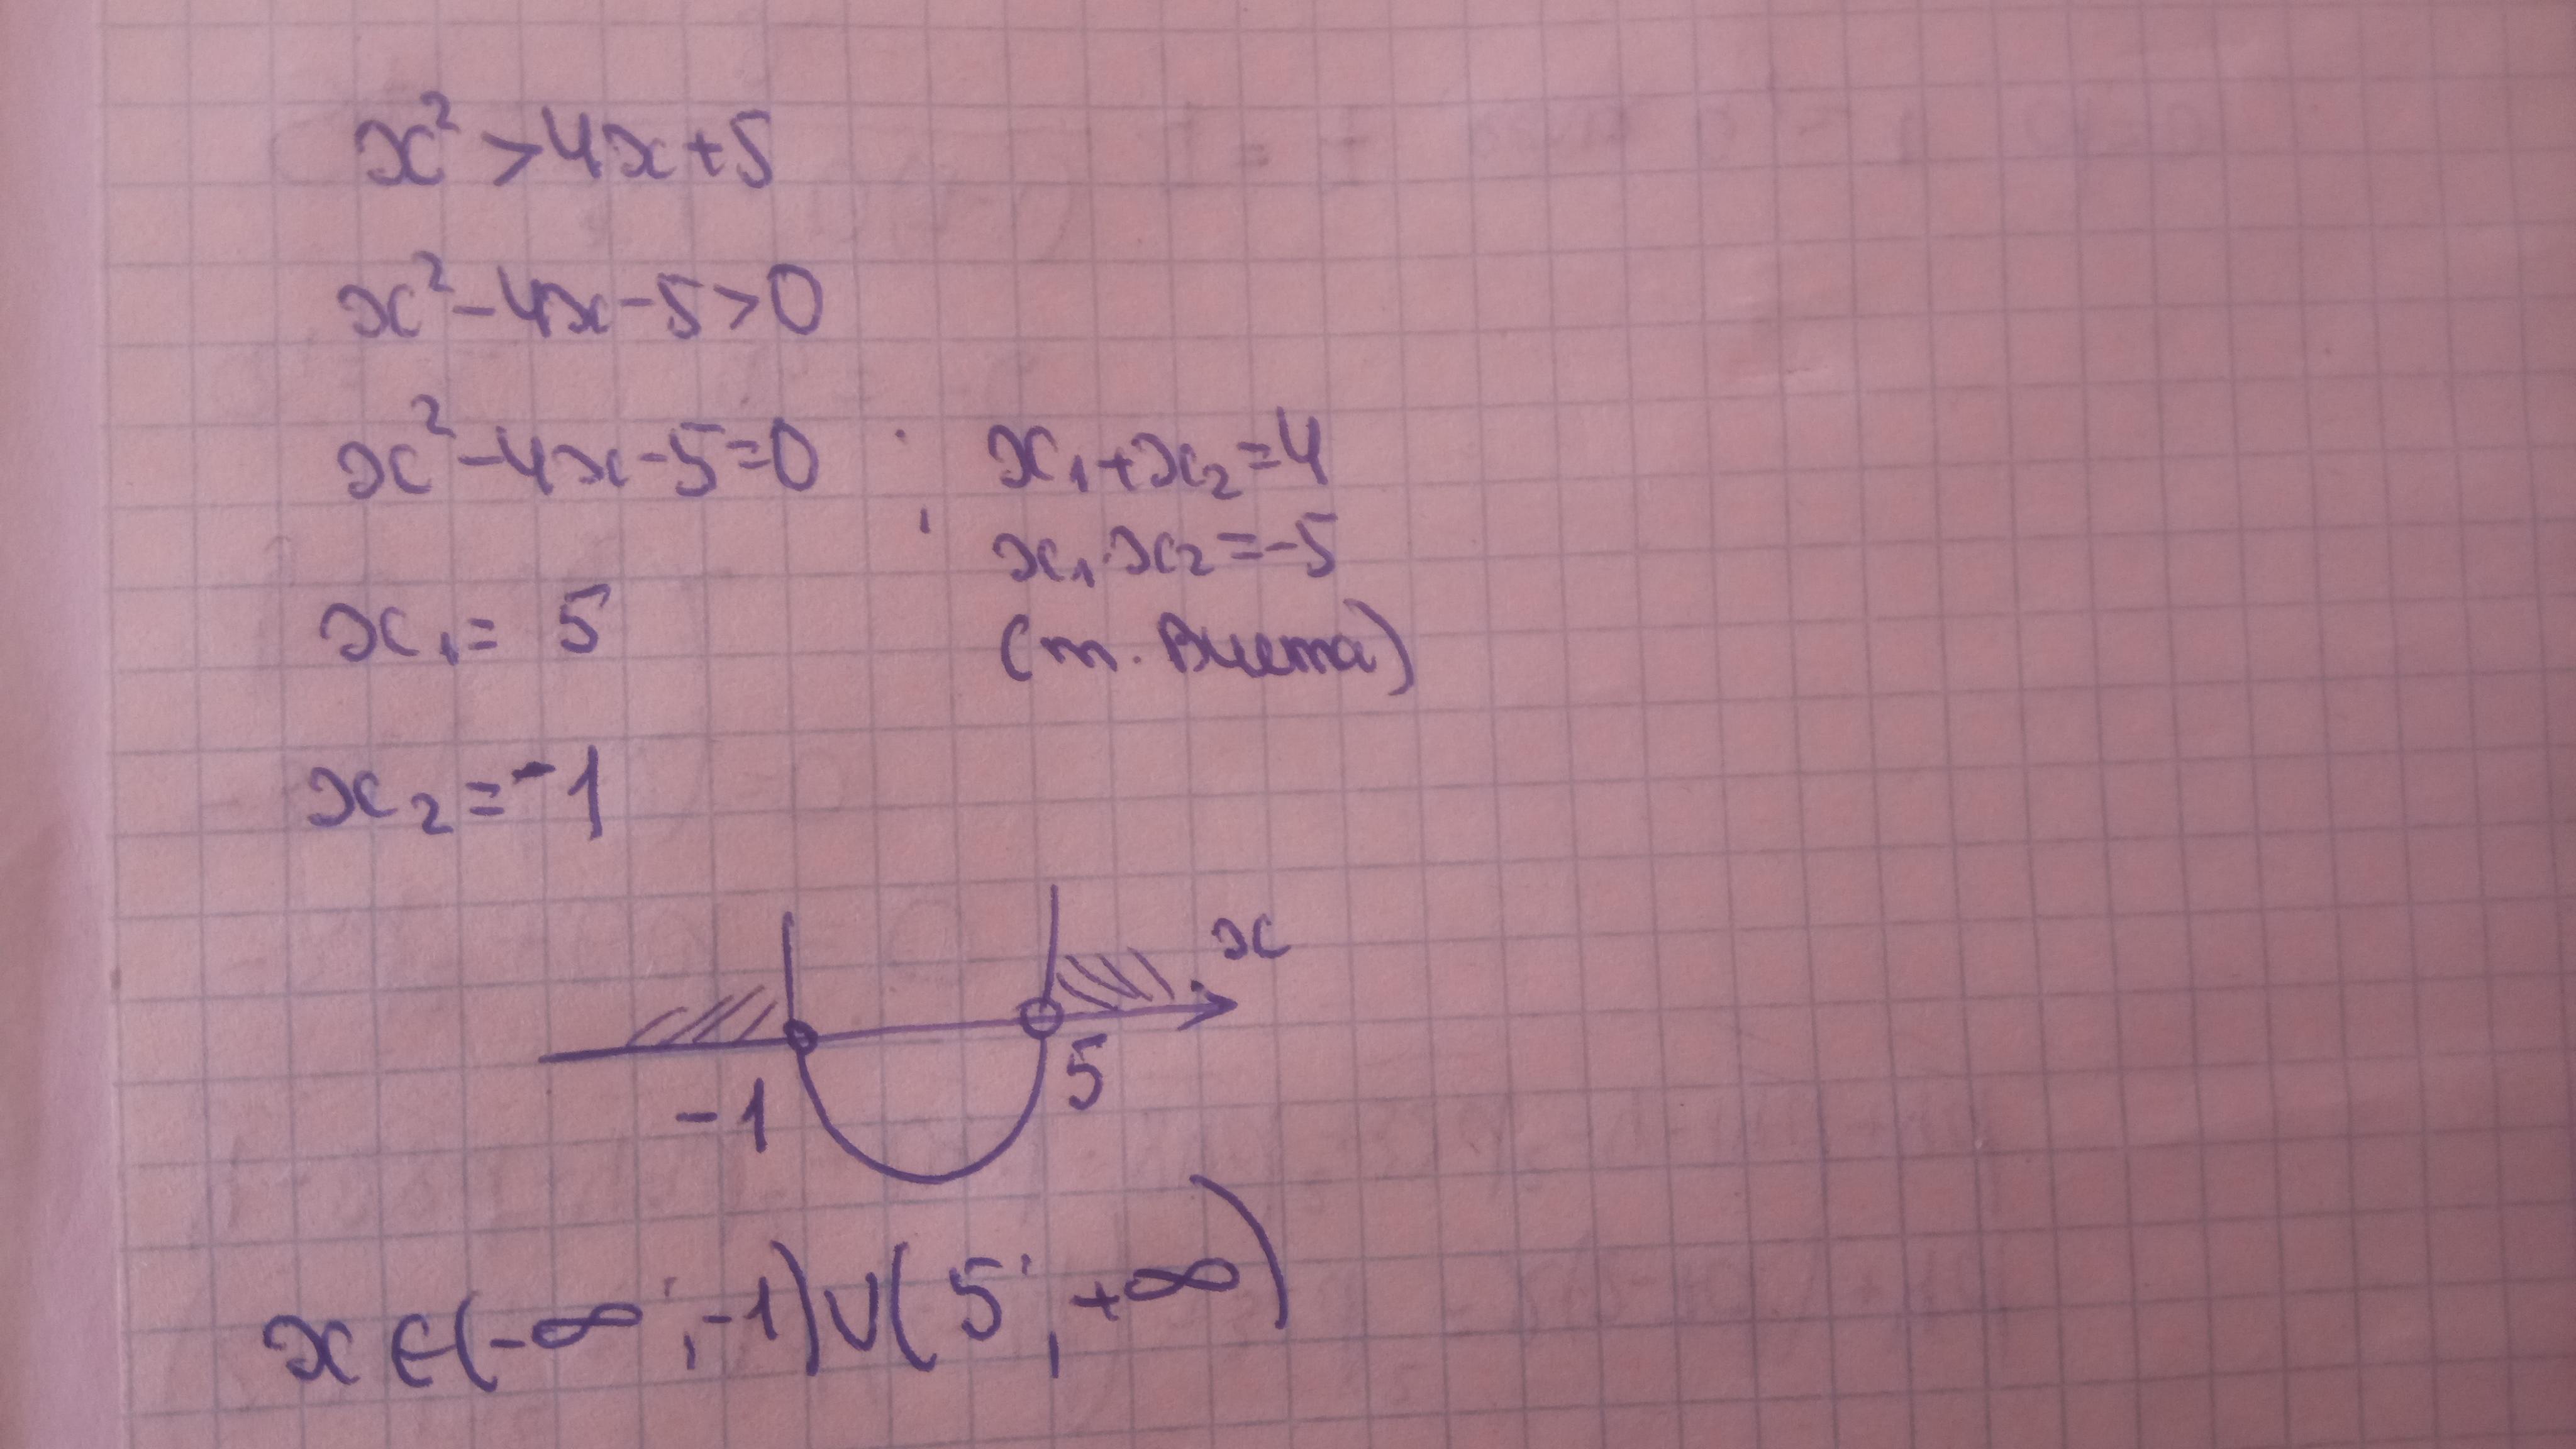 x² > 4x + 5
x² - 4x - 5 > 0
x² - 4x - 5 = 0 ;
x₁ + x₂ = 4
x₁ · x₂ = -5
(т. Виета)
x₁ = 5
x₂ = -1
x
-1
5
x ∈ (-∞; -1) ∪ (5; +∞)